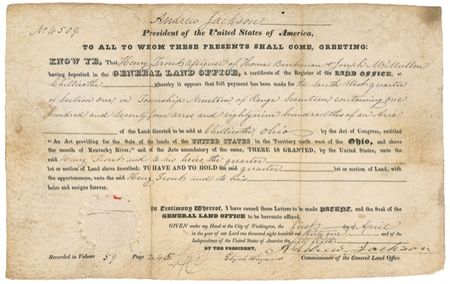 Andrew Jackson
No 4509
President of the United States of America,
TO ALL TO WHOM THESE PRESENTS SHALL COME, GREETING:
KNOW YE, That Henry assignee of Thomas & Joseph McMullen
having deposited in the GENERAL LAND OFFICE, a certificate of the Register of the LAND OFFICE, at
Chillicothe whereby it appears that full payment has been made for the South West quarter
of Section one in Township Nineteen of Range Seventeen containing one
Hundred and Seventy four acres and eighty nine hundredths of an Acre
of the Land directed to be sold at Chillicothe Ohio by the Act of Congress, entitled
"An Act providing for the Sale of the lands of the UNITED STATES in the Territory north west of the Ohio, and above
the mouth of Kentucky River," and of the Acts amendatory of the same, THERE IS GRANTED, by the United States, unto the
said Henry and to his heirs the quarter lot or section of
land above described: TO HAVE AND TO HOLD the said quarter lot or section of Land, with
the appurtenances, unto the said Henry and to his
heirs and assigns forever.
In Testimony Whereof, I have caused these Letters to be made PATENT, and the Seal of the
GENERAL LAND OFFICE to be hereunto affixed.
GIVEN under my Hand at the City of Washington, the first of April
in the year of our Lord one thousand eight hundred and and of the
Independence of the United States of America the fifty
BY THE PRESIDENT, Andrew Jackson
Recorded in Volume 59 Page 345 Elijah Hayward Commissioner of the General Land Office.